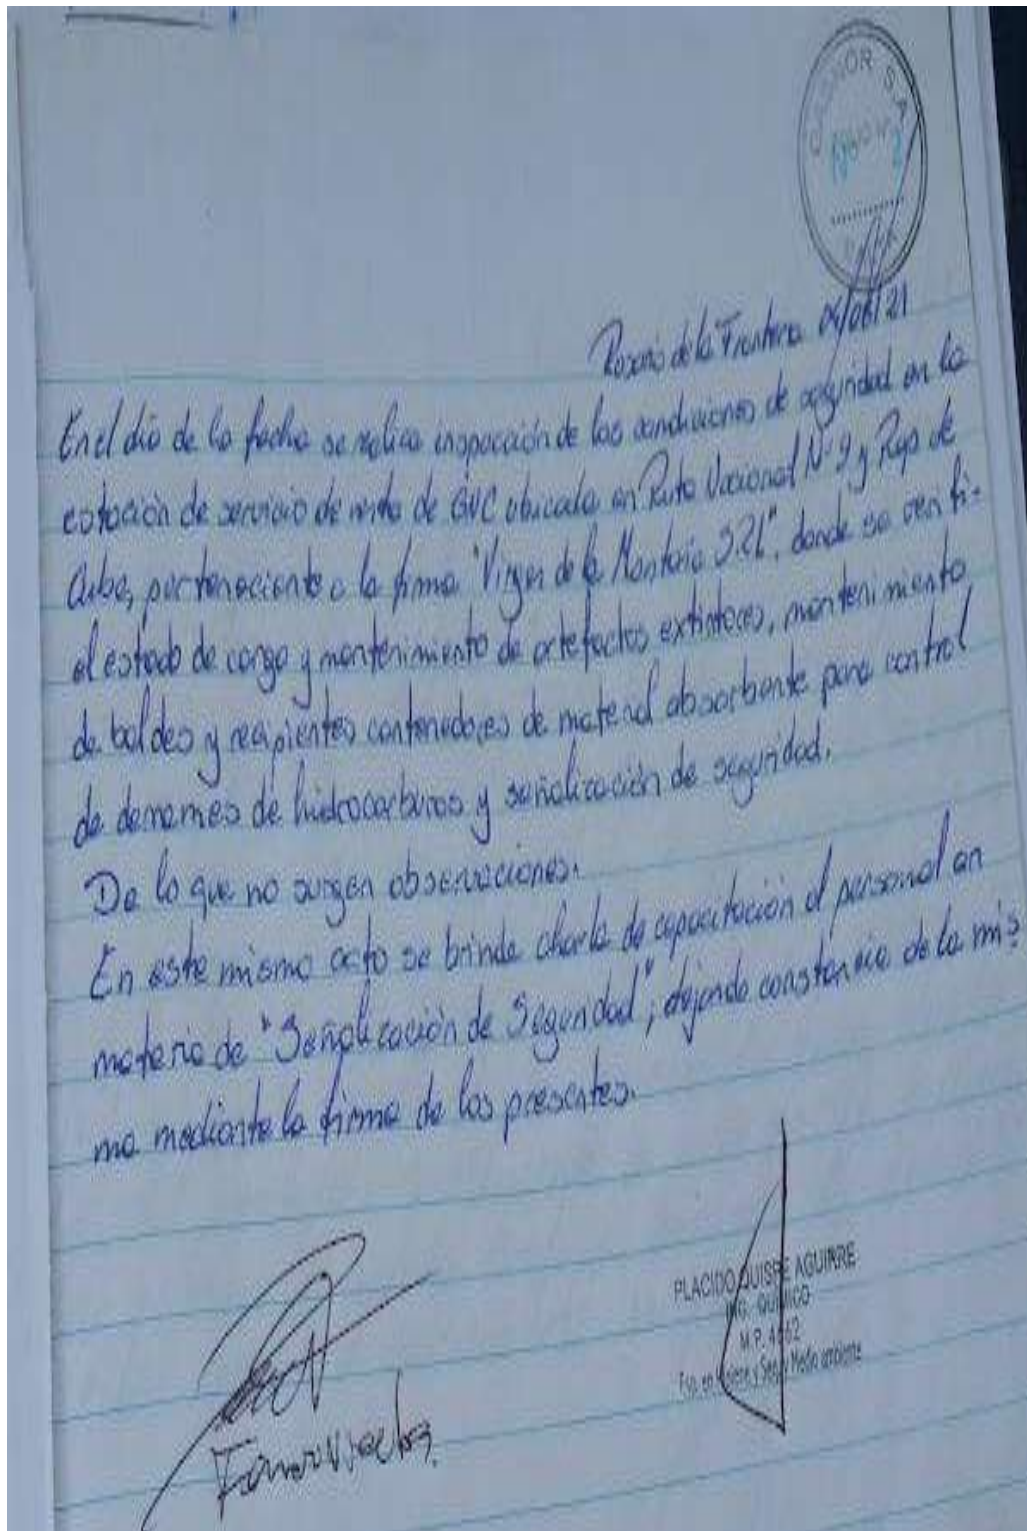 GASNOR S.A.
Rosario de la Frontera 04/06/21
En el día de la fecha se realiza inspección de las condiciones de seguridad en la
estación de servicio de venta de GNC ubicada en Ruta Nacional N° 9 y Paso de
pertenenciente a la firma "Virgen de la Montaña SRL", donde se verifi-
el estado de carga y mantenimiento de artefactos extintores, mantenimiento
de baldes y recipientes contenedores de material absorbente para control
de derrames de hidrocarburos y señalización de seguridad.
De lo que no surgen observaciones.
En este mismo acto se brinda charla de capacitación al personal en
materia de "Señalización de Seguridad"; dejando constancia de la mis-
ma mediante la firma de los presentes.
PLACIDO QUISPE AGUIRRE
ING. QUIMICO
M.P. 4562
Esp. en Higiene y Seg. y Medio ambiente